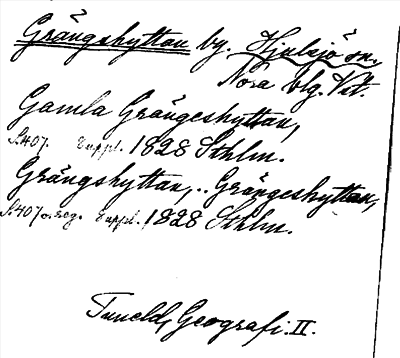 Grängshyttan by. Hjulsjö sn.
Nora blg. Vst.
Gamla Grängeshyttan,
S.407. Suppl. 1828 Sthlm.
Grängshyttan,.. Grängeshyttan,
S.407 o. reg. Suppl. 1828 Sthlm.
Tuneld, Geografi. II.